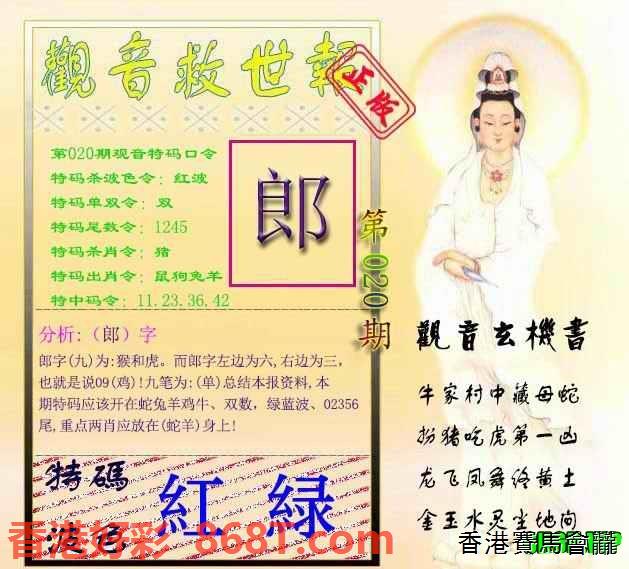 觀音救世報
正版
第020期观音特码口令
特码杀波色令：红波
特码单双令：双
特码尾数令：1245
特码杀肖令：猪
特码出肖令：鼠狗兔羊
特中码令：11.23.36.42
郎
第020期
分析:（郎）字
郎字(九)为:猴和虎。而郎字左边为六,右边为三，
也就是说09(鸡)!九笔为:(单)总结本报资料,本
期特码应该开在蛇兔羊鸡牛、双数，绿蓝波、02356
尾,重点两肖应放在(蛇羊)身上!
觀音玄機書
牛家村中藏母蛇
扮猪吃虎第一凶
龙飞凤舞终黄土
金玉水灵尘地间
特碼
波色
紅 绿
香港好彩 8681.com
香港賽馬會